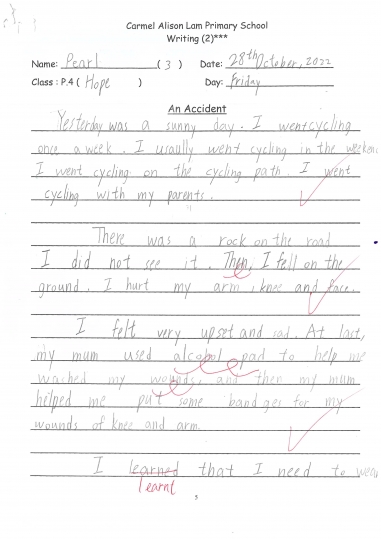 Carmel Alison Lam Primary School
Writing (2)***
Name: Pearl (3) Date: 28th October, 2022
Class : P.4 ( Hope ) Day: Friday
An Accident
Yesterday was a sunny day. I went cycling
once a week. I usaully went cycling in the weekend
I went cycling on the cycling path. I went
cycling with my parents.
There was a rock on the road
I did not see it. Then, I fell on the
ground. I hurt my arm, knee and face.
I felt very upset and sad. At last,
my mum used alcohol pad to help me
wached my wounds, and then my mum
helped me put some bandges for my
wounds of knee and arm.
I learned that I need to wear
learnt
5